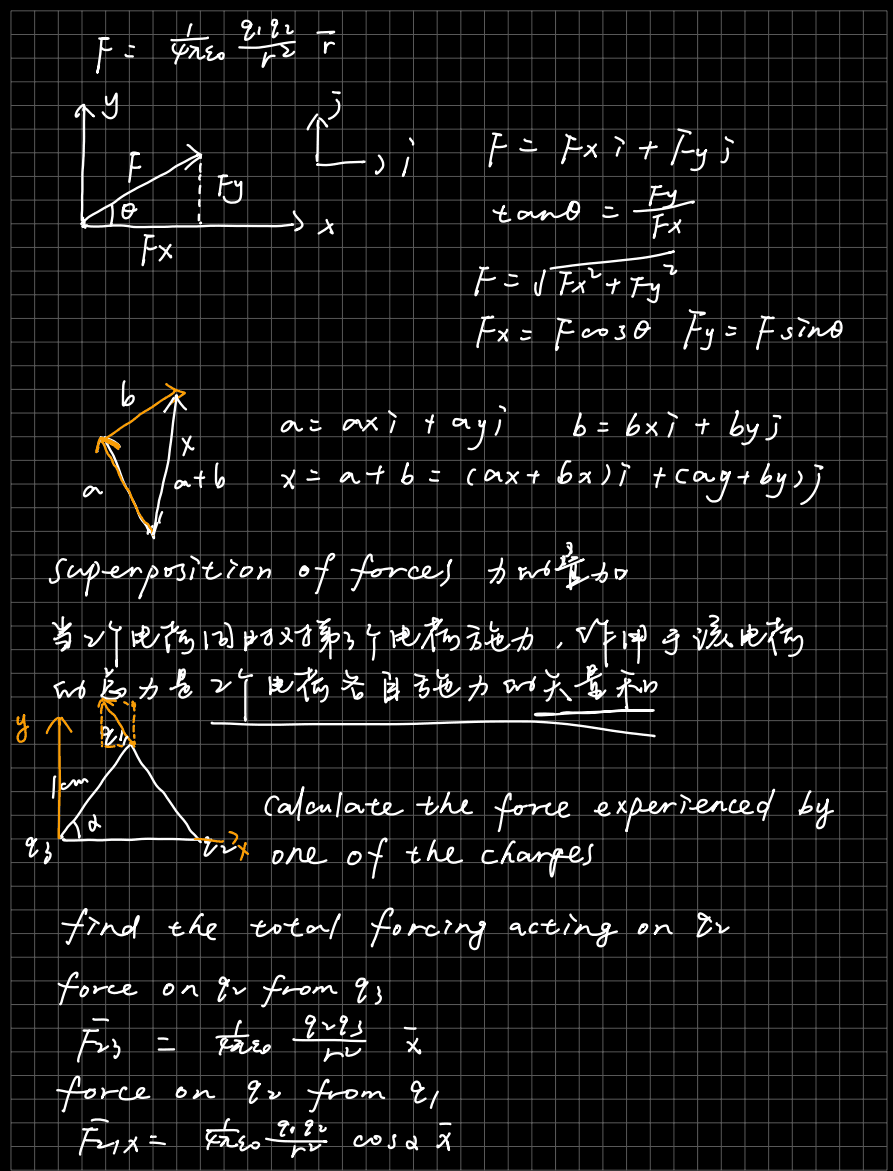 F = 1/4πε₀ q₁q₂/r² r̄
y
j̄
F
Fy
i
θ
x
Fx
F = Fx i + Fy j
tanθ = Fy/Fx
F = √Fx² + Fy²
Fx = F cosθ Fy = F sinθ
b
x
a
a+b
a = ax i + ay j b = bx i + by j
x = a + b = (ax + bx) i + (ay + by) j
superposition of forces 力的叠加
当2个电荷同时对第3个电荷施力,作用于该电荷
的总力是2个电荷各自施力的矢量和
y
q₁
1cm
α
q₃
q₂
x
calculate the force experienced by
one of the charges
find the total forcing acting on q₂
force on q₂ from q₃
F̄₂₃ = 1/4πε₀ q₂q₃/r² x̄
force on q₂ from q₁
F̄₂₁x = 1/4πε₀ q₁q₂/r² cosα x̄